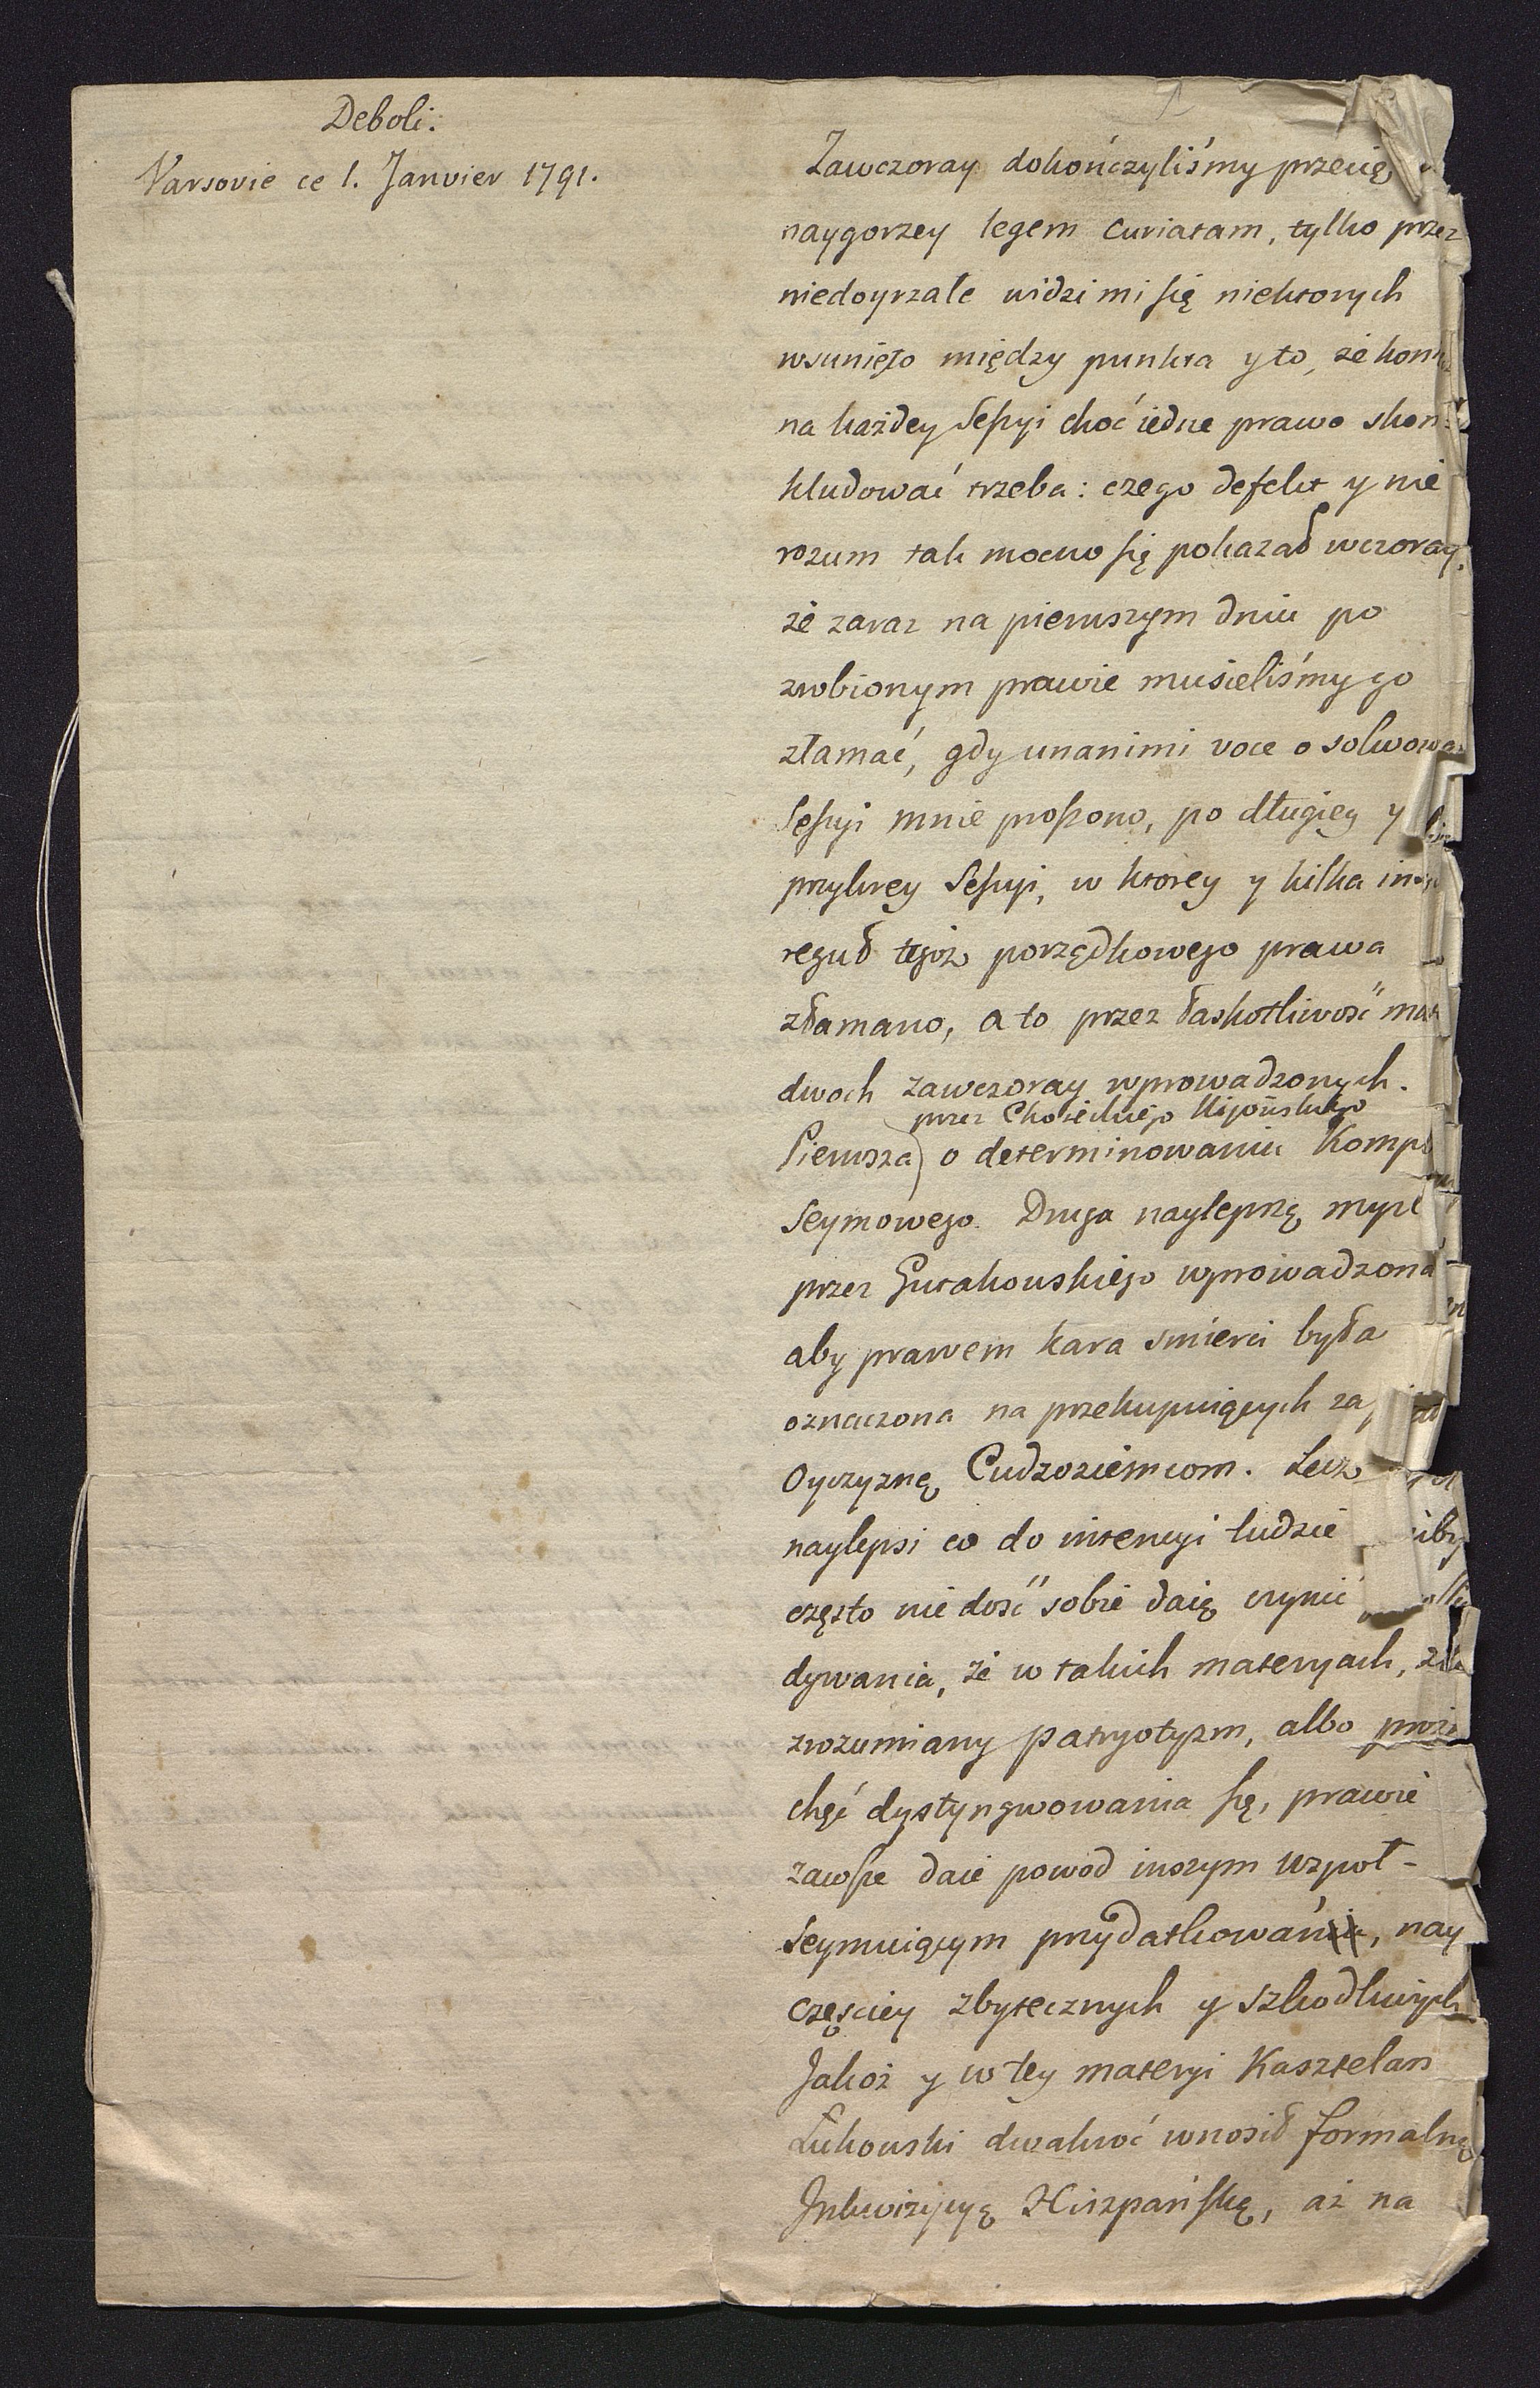 Deboli.
Varsovie ce 1. Janvier 1791.
Zawczoray dokończyliśmy przecię
naygorzey legem curiatam, tylko przez
niedoyrzałe widzi mi się niektorych
wsunięto między punkta y to, że
na każdey Sessyi choć iedne prawo skon:
kludować trzeba: czego defekt y nie
rozum tak mocno się pokazał wczoray,
że zaraz na pierwszym dniu po
zrobionym prawie musieliśmy go
złamać, gdy unanimi voce o solwowa
Sessyi mnie proszono, po długiey y
przykrey Sessyi, w ktorey y kilka
reguł tegoż porządkowego prawa
złamano, a to przez łaskotliwość
dwoch zawczoray wprowadzonych.
przez Chołeckiego Kijowskiego
Pierwsza) o determinowaniu Kompl
Seymowego. Druga naylepszą myśl
przez Gutakowskiego wprowadzona
aby prawem kara smierci była
oznaczona na przekupuiących
Oyczyznę Cudzoziemcom. Lecz
naylepsi co do intencyi ludzie
często nie dość sobie daią czynić
dywania, że w takich materyach,
zrozumiany patryotyzm, albo
chęć dystyngwowania się, prawie
zawsze daie powod inszym wzpoł-
seymuiącym przydatkowań, nay
częsciey zbytecznych y szkodliwych
Jakoż y w tey materyi Kasztelan
Łukowski dwakroć wnosił formalną
Inkwizycyę Hiszpańską, aż na